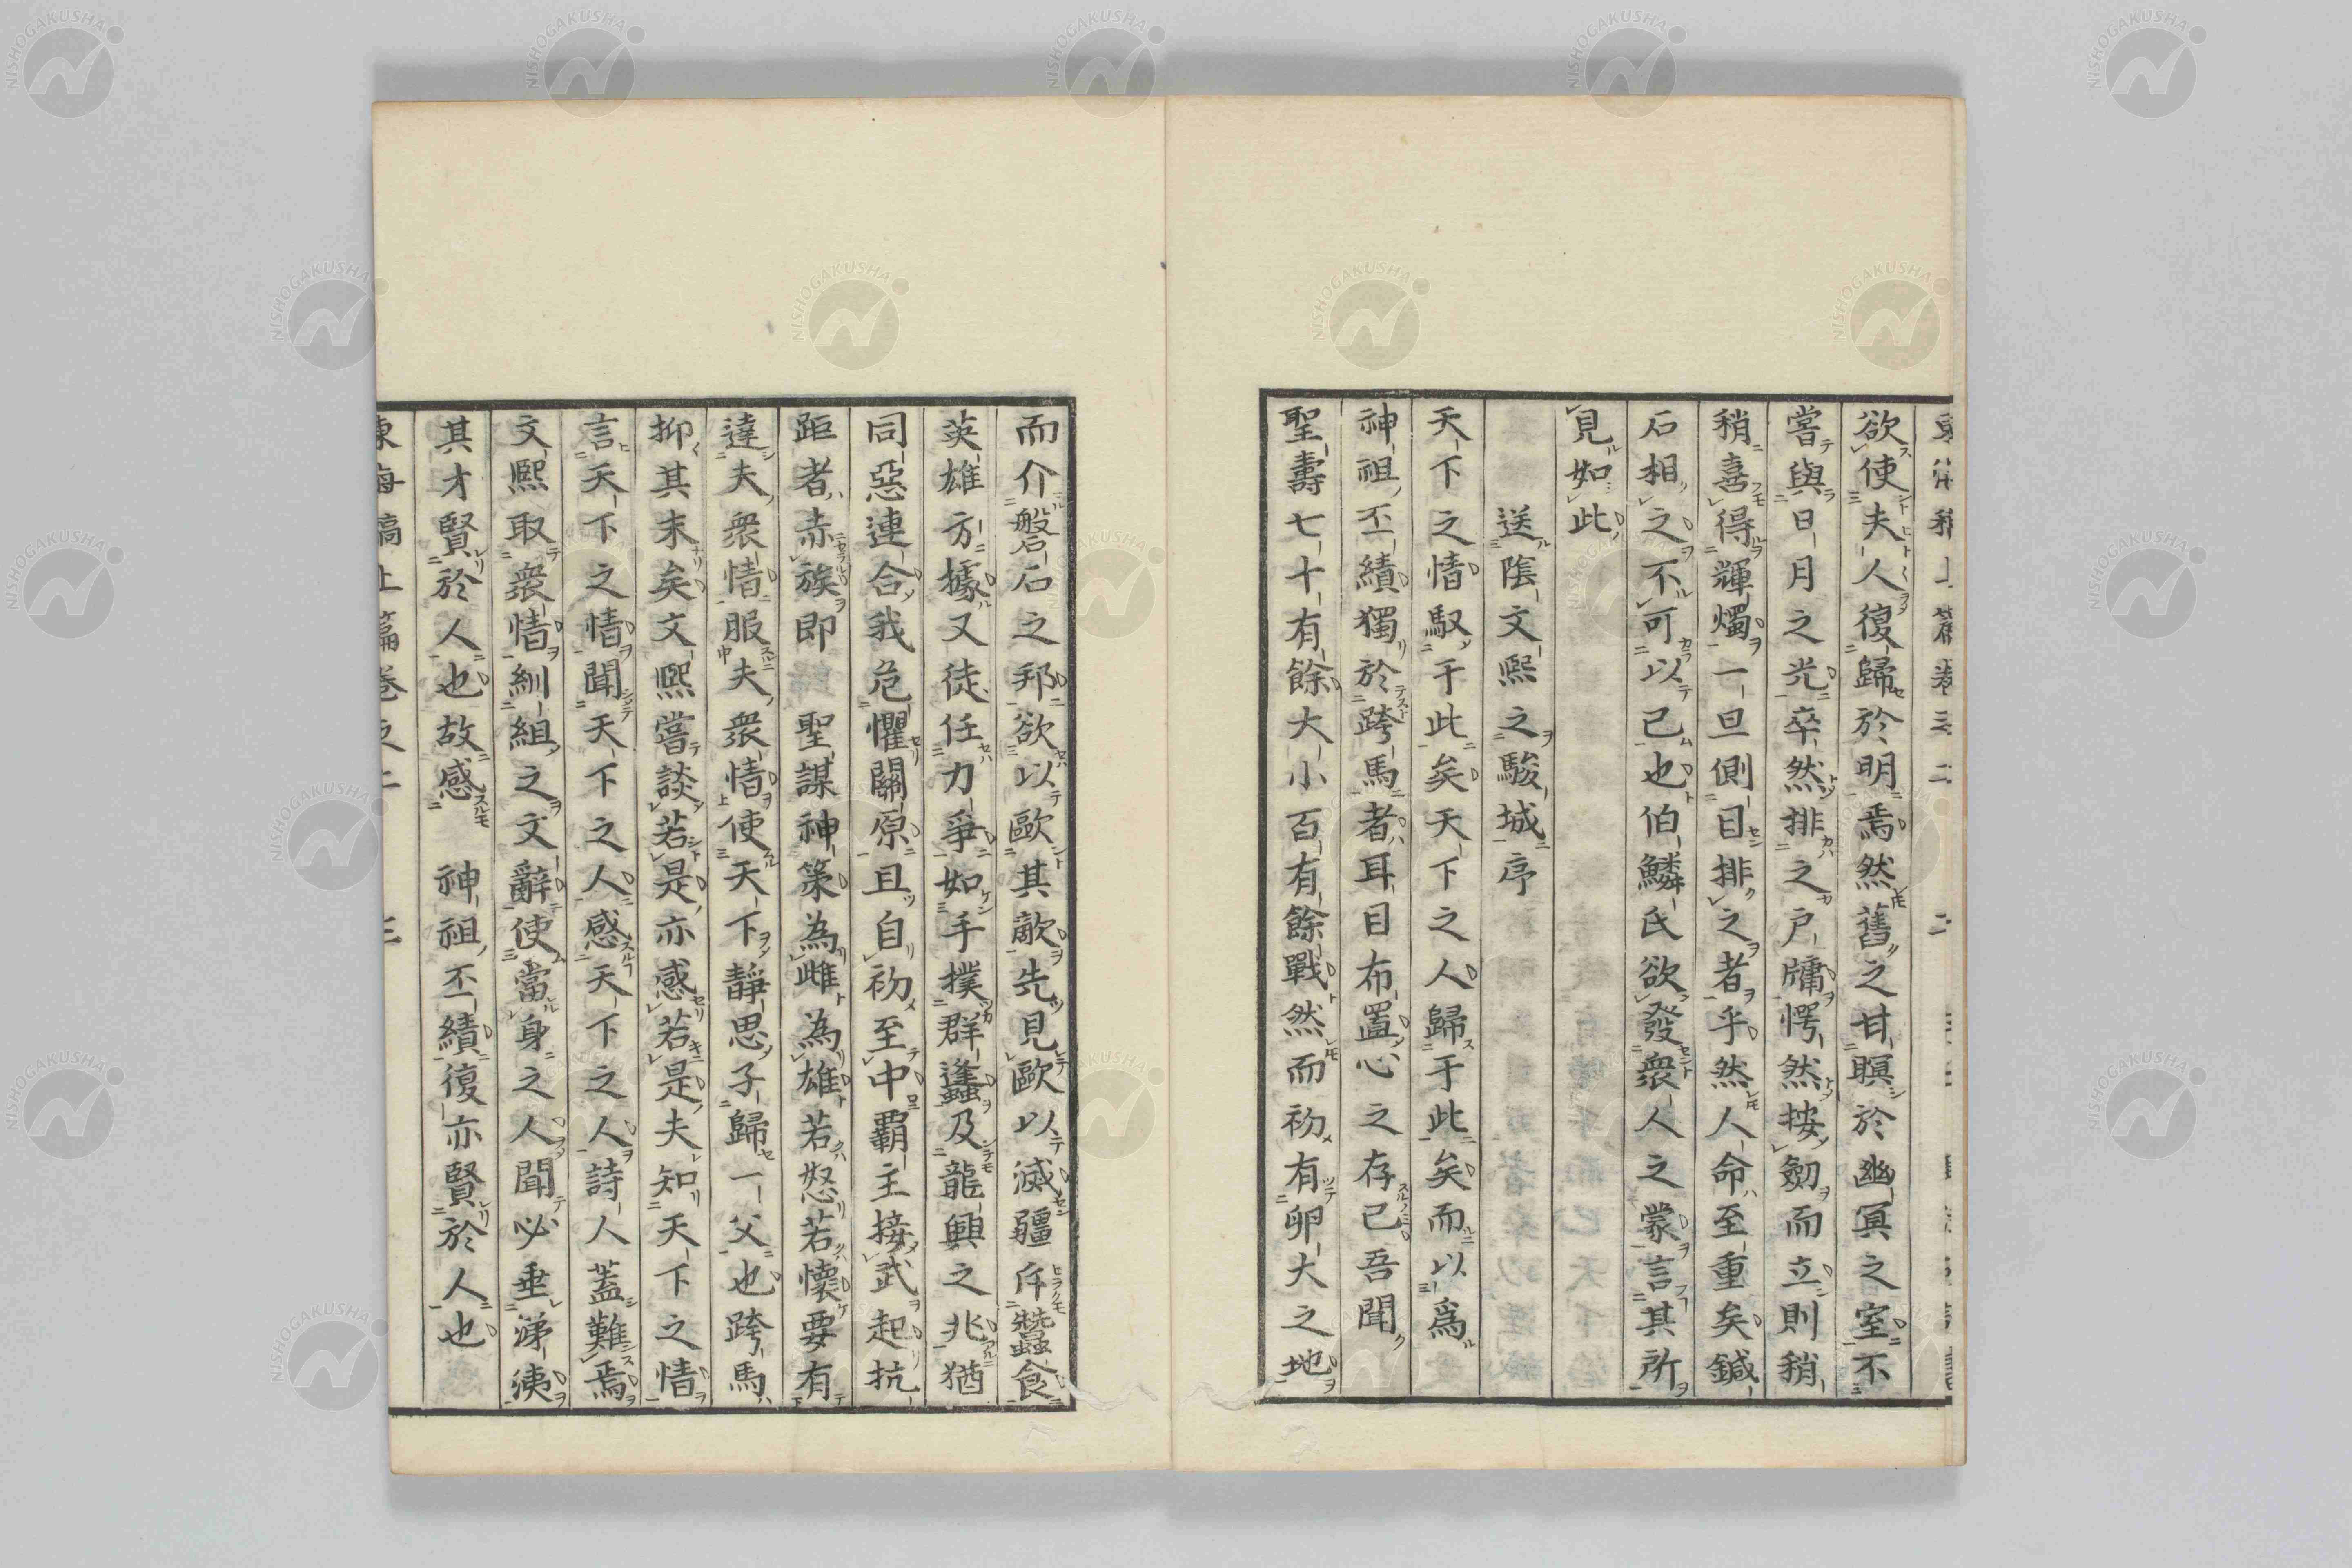 欲使夫人復歸於明焉然舊之甘瞑於幽冥之室不
嘗與日月之光卒然排之戶牖愕然按劒而立則稍
稍喜得輝燭一旦側目排之者乎然人命至重矣鍼
石相之不可以已也伯鱗氏欲發衆人之蒙言其所
見如此
送陰文熙之駿城序
天下之情馭于此矣天下之人歸于此矣而以爲
神祖丕績獨於跨馬者耳目布置心之存已吾聞
聖壽七十有餘大小百有餘戰然而初有卵大之地
而介磐石之邦欲以歐其敵先見歐以滅疆斥蠶食
英雄方據又徒任力爭如手撲群蠭及龍興之兆猶
同惡連合我危懼關原且自初至中覇主接武起抗
距者赤族即 聖謀神策為雌為雄若怒若懷要有
達夫衆情服夫衆情使天下靜思子歸一父也跨馬
抑其末矣文熙嘗談若是亦感若是夫知天下之情
言天下之情聞天下之人感天下之人詩人蓋難焉
文熙取衆情紃組之文辭使當身之人聞必垂涕洟
其才賢於人也故感 神祖丕績復亦賢於人也
東海稿上篇卷之二 三
NISHOGAKUSHA